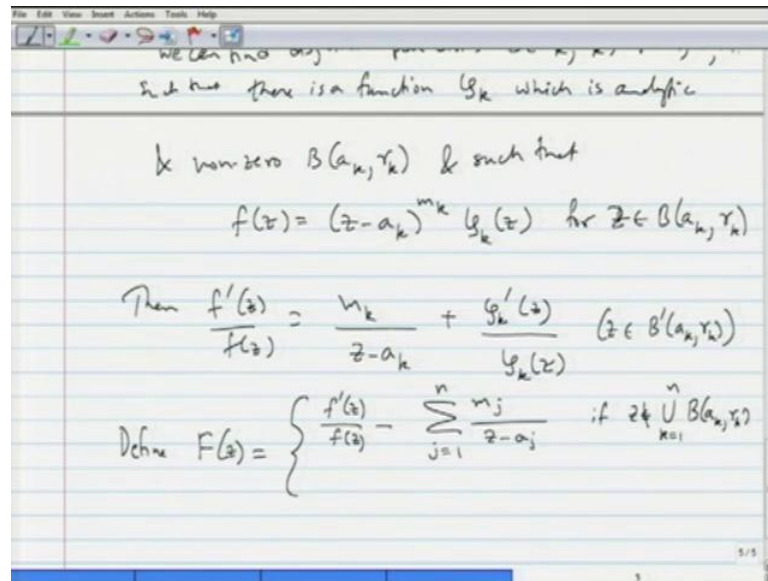 File Edit View Insert Actions Tools Help
we can find
such that there is a function φₖ which is analytic
& non-zero B(aₖ, rₖ) & such that
f(z) = (z-aₖ)^mₖ φₖ(z) for z ∈ B(aₖ, rₖ)
Then f'(z)/f(z) = mₖ/(z-aₖ) + φₖ'(z)/φₖ(z) (z ∈ B'(aₖ, rₖ))
Define F(z) = { f'(z)/f(z) - ∑_{j=1}^{n} m_j/(z-a_j) if z ∉ ⋃_{k=1}^{n} B(aₖ, rₖ)
5/5